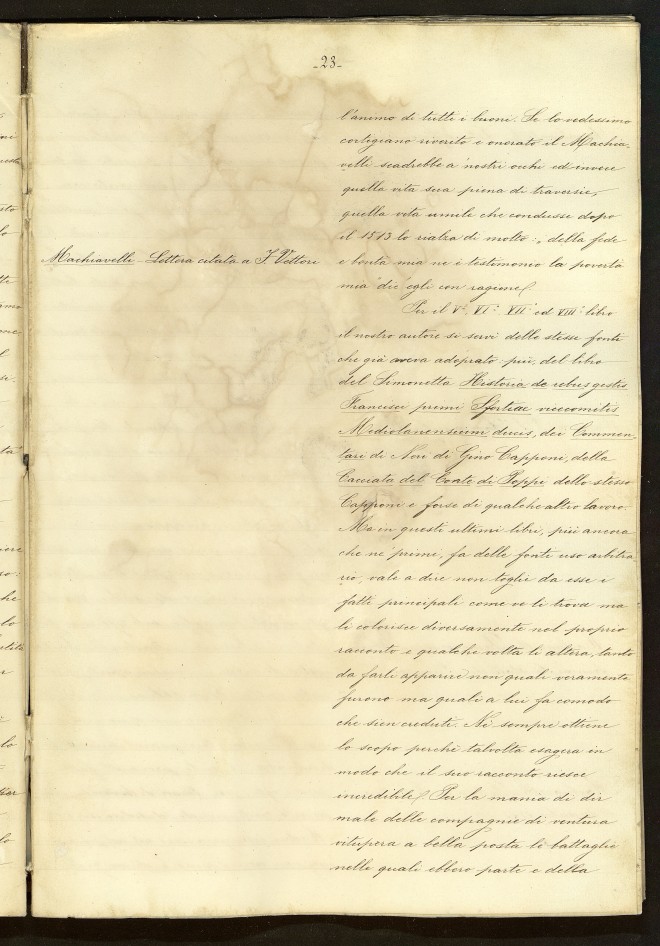 -23-
l'animo di tutti i buoni. Se lo vedessimo
cortegiano riverito e onorato il Machia-
velli scadrebbe a' nostri occhi ed invece
quella vita sua piena di traversie,
quella vita umile che condusse dopo
il 1513 lo rialza di molto: „ della fede
Machiavelli - Lettera citata a F. Vettori
e bontà mia ne è testimonio la povertà
mia" dic' egli con ragione/
Per il V° VI° VII° ed VIII° libro
il nostro autore si servì delle stesse fonti
che già aveva adoprato più, del libro
del Simonetta Historia de rebus gestis
Francisci primi Sfortiae vicecomitis
Mediolanensium ducis, dei Commen-
tari di Neri di Gino Capponi, della
Cacciata del Conte di Poppi dello stesso
Capponi e forse di qualche altro lavoro.
Ma in questi ultimi libri, più ancora
che ne' primi, fa delle fonti uso arbitra-
rio, vale a dire non toglie da esse i
fatti principali come ve li trova ma
li colorisce diversamente nel proprio
racconto e qualche volta li altera, tanto
da farli apparire non quali veramente
furono ma quali a lui fa comodo
che sien creduti. Nè sempre ottiene
lo scopo perchè talvolta esagera in
modo che il suo racconto riesce
incredibile/ Per la mania di dir
male delle compagnie di ventura
vitupera a bella posta le battaglie
nelle quali ebbero parte e della